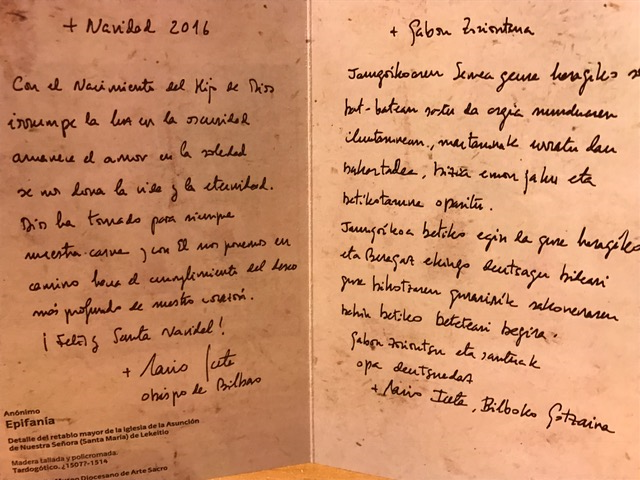 + Navidad 2016
Con el Nacimiento del Hijo de Dios
irrumpe la luz en la oscuridad
amanece el amor en la soledad
se nos dona la vida y la eternidad.
Dios ha tomado para siempre
nuestra carne y con Él nos ponemos en
camino hacia el cumplimiento del deseo
más profundo de nuestro corazón.
¡Feliz y Santa Navidad!
+ Mario Iceta
obispo de Bilbao
Anónimo
Epifanía
Detalle del retablo mayor de la iglesia de la Asunción
de Nuestra Señora (Santa María) de Lekeitio
Madera tallada y policromada.
Tardogótico. ¿1507?-1514
Museo Diocesano de Arte Sacro
+ Gabon Zoriontsua
Jaungoikoaren Semea geure haragiko
bat-batean sortu da argia munduaren
iluntasunean, maitasunak urratu dau
bakartadea, bizia emon jaku eta
betikotasuna oparitu.
Jaungoikoa betiko egin da gure haragiko
eta Beragaz ekingo deutsagu bideari
gure bihotzaren guraririk sakonenaren
behin betiko beteteari begira.
Gabon zoriontsu eta santuak
opa deutsuedaz
+ Mario Iceta, Bilboko Gotzaina